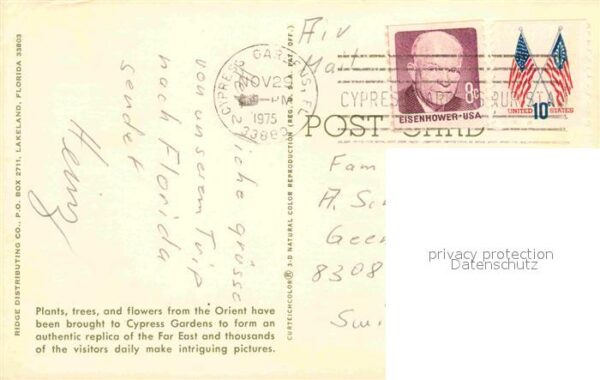 RIDGE DISTRIBUTING CO., P.O. BOX 2711, LAKELAND, FLORIDA 33803
iche grüsse
von unserem Trip
nach Florida
sendet
Heinz
Plants, trees, and flowers from the Orient have
been brought to Cypress Gardens to form an
authentic replica of the Far East and thousands
of the visitors daily make intriguing pictures.
CURTEICHCOLOR® 3-D NATURAL COLOR REPRODUCTION (REG. U.S.A. PAT. OFF.)
Air
Mail
CYPRESS GARDENS, FL
NOV 25
PM
1975
33880
CYPRESS GARDENS
8c
EISENHOWER·USA
UNITED STATES
10c
POST CARD
Fam
A. Sc
Gee
8308
privacy protection
Datenschutz